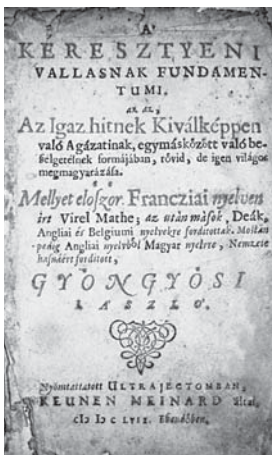 A'
KERESZTYENI
VALLASNAK FUNDAMEN-
TUMI.
az az,
Az Igaz hitnek Kiválképpen
való Agázatinak, egymásközött való be-
ſelgetéſnek formájában, rövid, de igen világos
megmagyarázáſa.
Mellyet eloſzor Francziai nyelven
irt Virel Mathe; az után mások, Deák,
Angliai és Belgiumi nyelvekre fordítottak. Moſtan
pedig Angliai nyelvből Magyar nyelvre, Nemzete
haſnáért fordított,
GYÖNGYÖSI
LASZLO.
Nyomtattatott ULTRAJECTOMBAN,
KEUNEN MEINARD által,
cIↄ Iↄ c LVII. Eſztendőben,